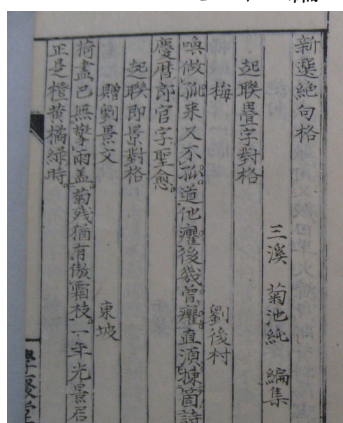 新選絶句格
三溪 菊池純 編集
起聯疊字對格
梅 劉後村
喚做孤来又不孤。道他癯後我曾癯。直須揀箇詩
慶暦郎官字聖愈。
起聯即景對格
贈劉景文 東坡
荷盡已無擎雨盖。菊残猶有傲霜枝。一年光景君
正是橙黄橘緑時。